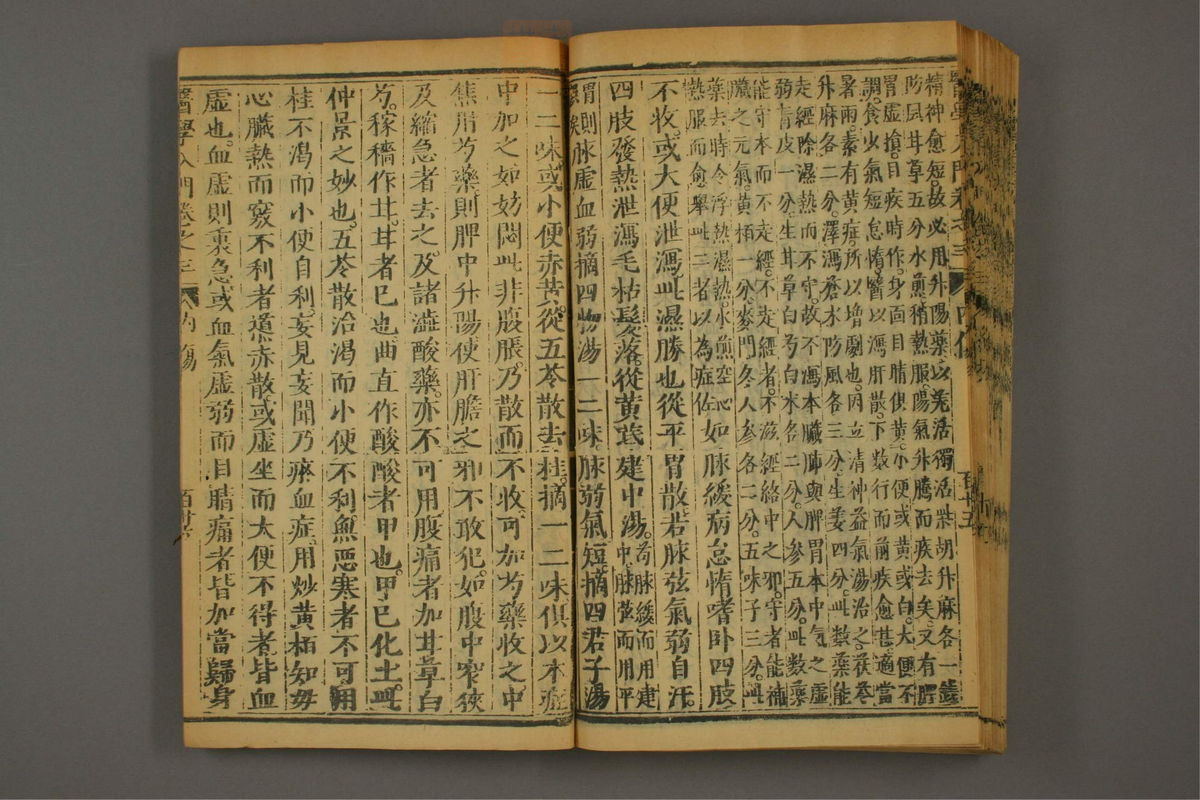 精神愈短。故必用升陽藥以羌活獨活柴胡升麻各一錢
防風甘草五分水煎稍熱服。陽氣升騰而疾去矣。又有脾
胃虛損。目疾時作。身面目睛俱黃。小便或黃或白。大便不
調。食少氣短怠惰。醫以瀉肝散。下數行而前疾愈甚。適當
暑雨。素有黃疸。所以增劇也。因立清神益氣湯治之。茯苓
升麻各二分。澤瀉蒼朮防風各三分。生姜四分。此數藥能
走經除濕熱而不守。故不瀉本臟肺與脾胃本中氣之虛
弱青皮一分。生甘草白芍白朮各二分。人參五分。此數藥
能守本而不走經。不走經者。不滋經絡中之邪。守者能補
臟之元氣。黃柏一分。麥門冬人參各二分。五味子三分。此
藥去時令浮熱濕熱。水煎空心如
熱服而愈舉此二者以為症佐
脉緩病怠惰嗜卧四肢
不收。或大便泄瀉。此濕勝也從平胃散。若脉弦氣弱自汗。
四肢發熱泄瀉毛枯髮落。從黃芪建中湯。
若脉緩而用建
中脉弦而用平
胃則
誤矣
脉虛血弱摘四物湯一二味。脉弱氣短摘四君子湯
一二味。或小便赤黃。從五苓散去桂。摘一二味。俱以本症
中加之如妨悶此非腹脹。乃散而不收。可加芍藥收之中
焦用芍藥則脾中升陽使肝膽之邪不敢犯。如腹中窄狹
及縮急者去之。及諸澁酸藥。亦不可用。腹痛者加甘草白
芍。稼穡作甘。甘者巳也。曲直作酸。酸者甲也。甲巳化土。此
仲景之妙也。五苓散治渴而小便不利。無惡寒者不可用
桂不渴而小便自利。妄見妄聞。乃瘀血症。用炒黃柏知母
心臟熱而竅不利者道赤散。或虛坐而大便不得者皆血
虛也。血虛則裏急。或血氣虛弱而目睛痛者皆加當歸身
醫學入門卷之三 內傷 百廿六